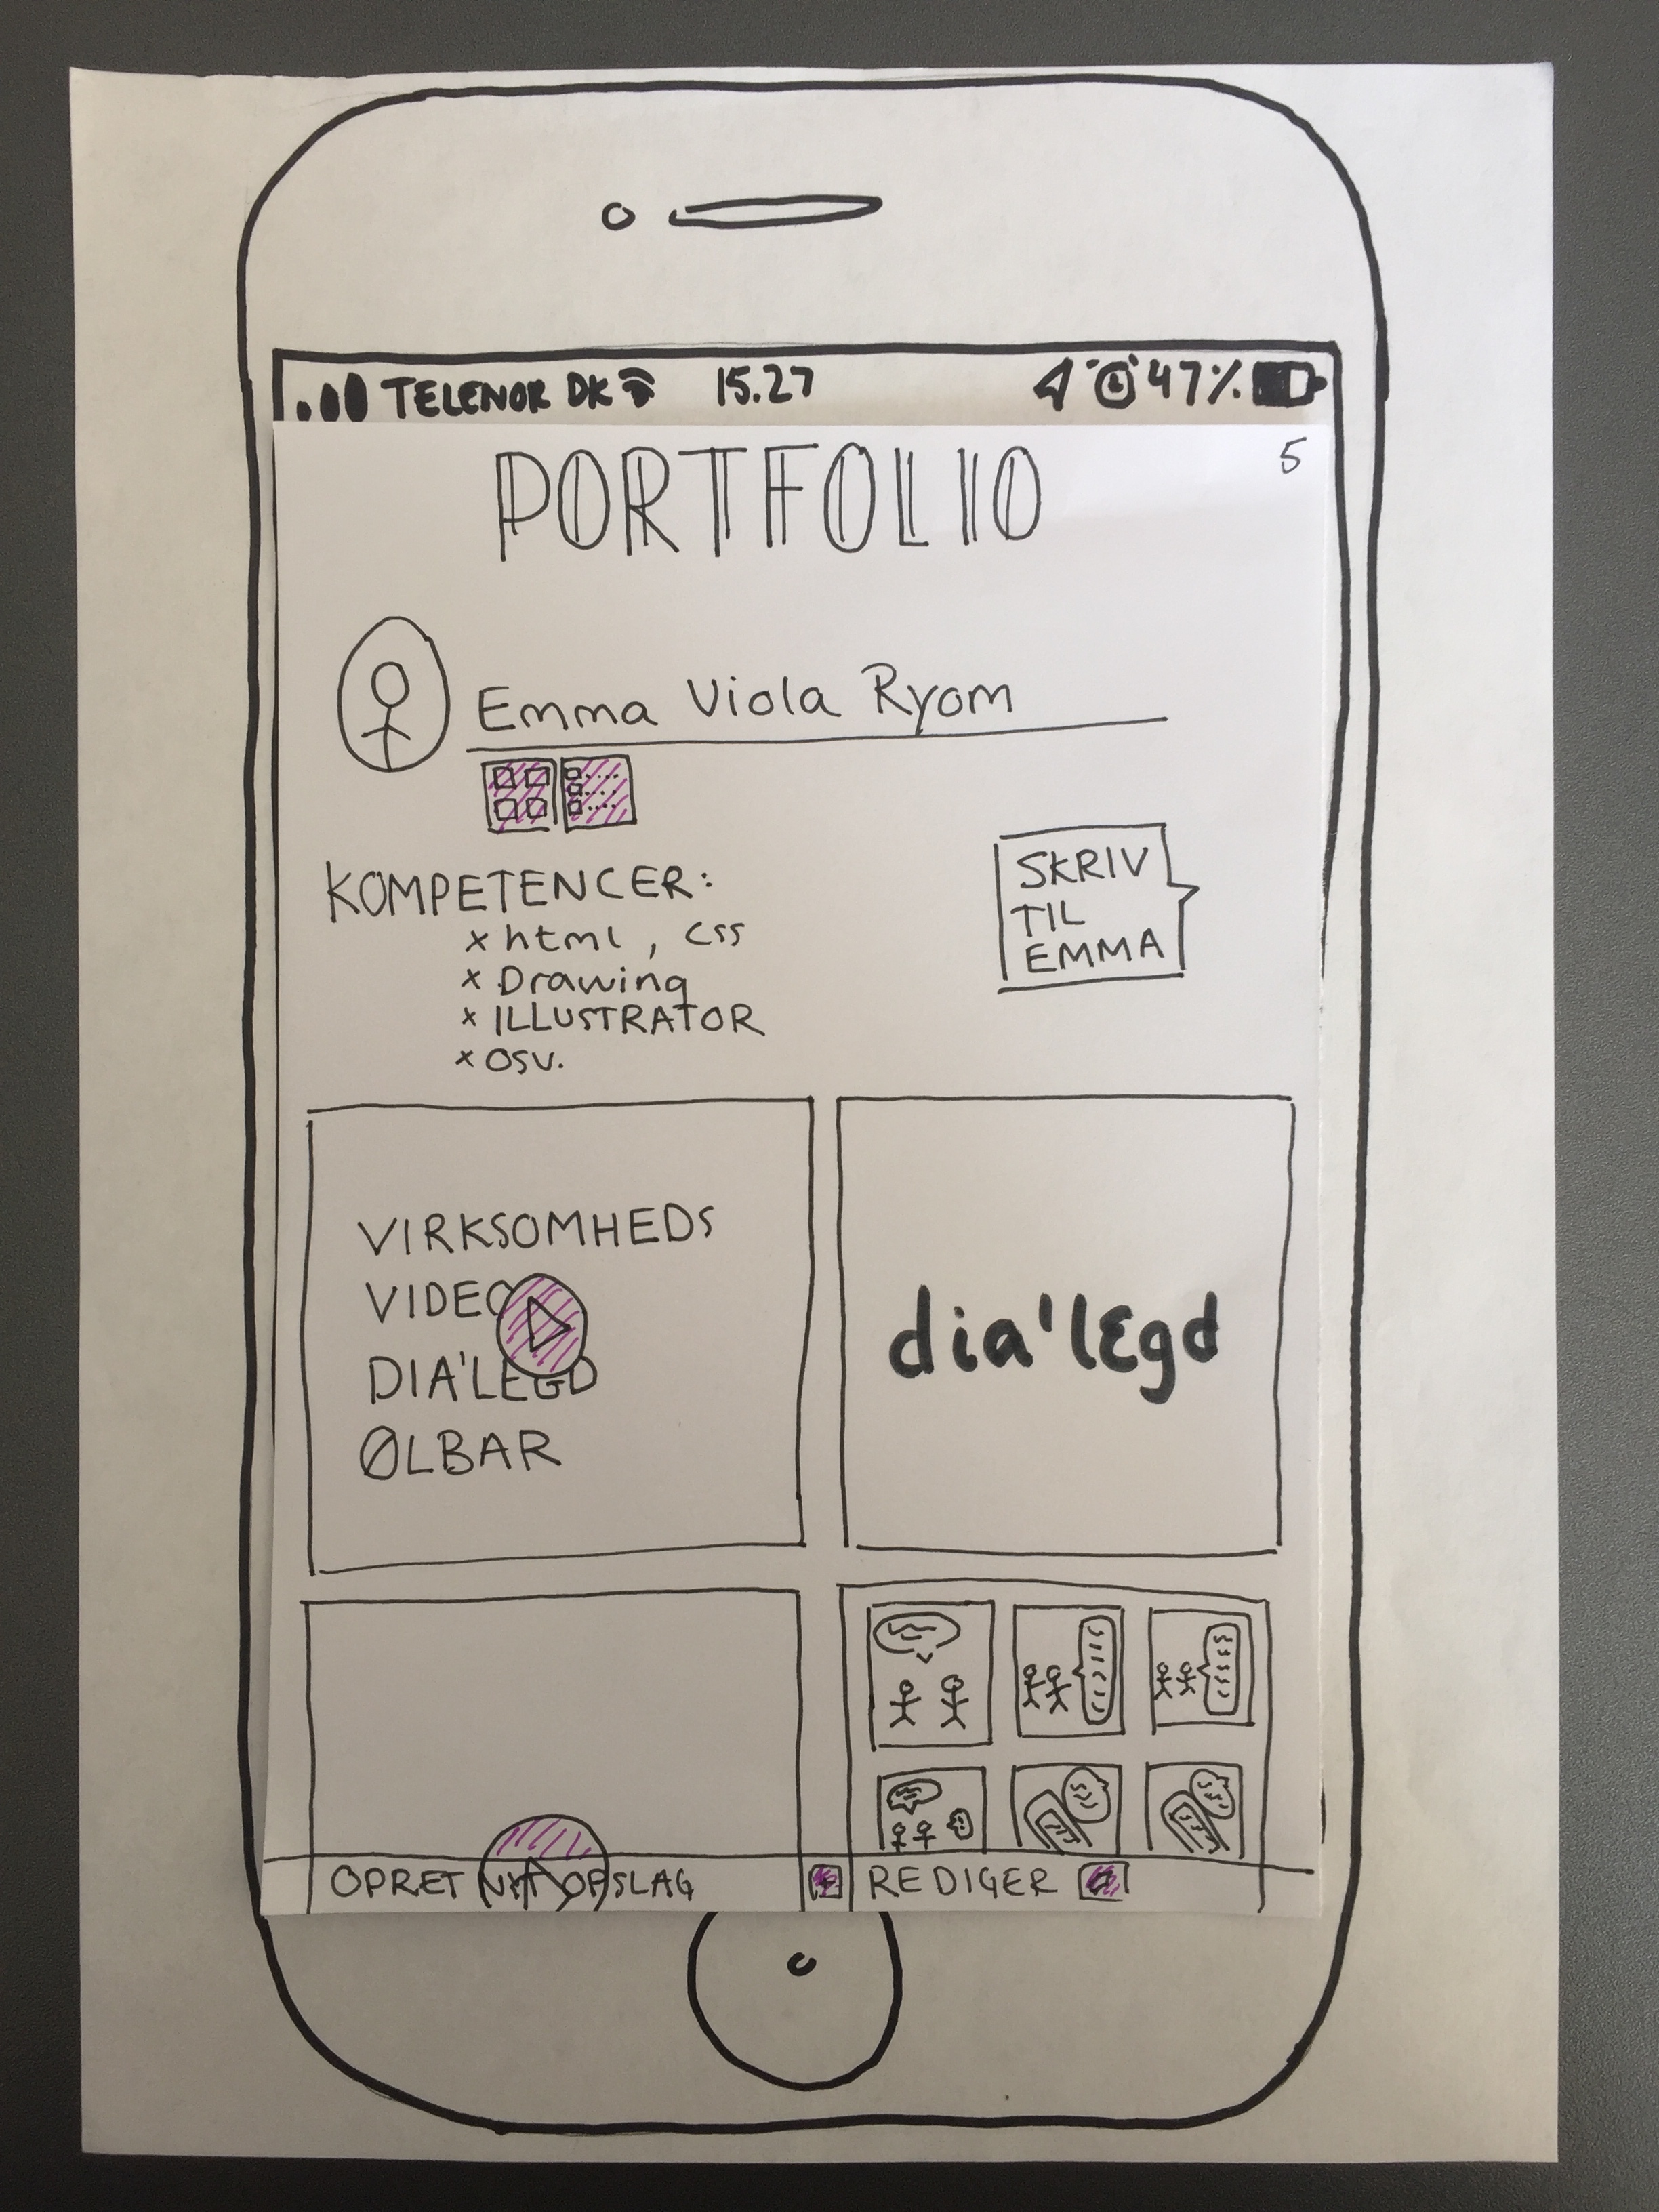 TELENOR DK 15.27 47%
5
PORTFOLIO
Emma Viola Ryom
KOMPETENCER:
x html, css
x Drawing
x ILLUSTRATOR
x osv.
SKRIV
TIL
EMMA
VIRKSOMHEDS
VIDEO
DIA'LEGD
ØLBAR
dia'lεgd
OPRET NYT OPSLAG +
REDIGER